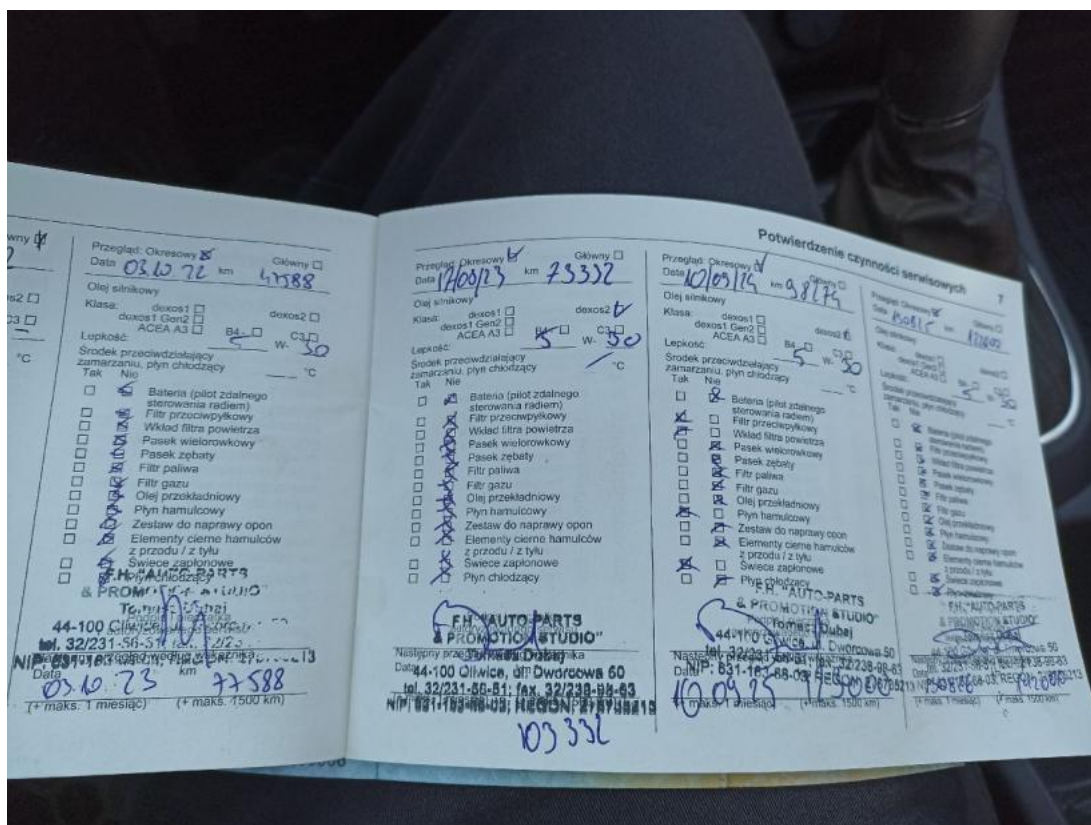 wny
s2 ☐
C3 ☐
°C
Przegląd: Okresowy ☒ Główny ☐
Data 03.10.22 km 47588
Olej silnikowy
Klasa: dexos1 ☐ dexos2 ☐
dexos1 Gen2 ☐
ACEA A3 ☐ B4 ☐ C3 ☐
Lepkość: 5 W- 30
Środek przeciwdziałający
zamarzaniu, płyn chłodzący °C
Tak Nie
Bateria (pilot zdalnego
sterowania radiem)
Filtr przeciwpyłkowy
Wkład filtra powietrza
Pasek wielorowkowy
Pasek zębaty
Filtr paliwa
Filtr gazu
Olej przekładniowy
Płyn hamulcowy
Zestaw do naprawy opon
Elementy cierne hamulców
z przodu / z tyłu
Świece zapłonowe
Płyn chłodzący
F.H. "AUTO-PARTS
& PROMOTION STUDIO"
44-100 Gliwice
tel. 32/231-56-51
Data km
03.10.23 77588
(+ maks. 1 miesiąc) (+ maks. 1500 km)
Przegląd: Okresowy Główny ☐
Data 17/08/23 km 73332
Olej silnikowy
Klasa: dexos1 ☐ dexos2
dexos1 Gen2 ☐
ACEA A3 ☐ B4 ☐ C3 ☐
Lepkość: 5 W- 30
Środek przeciwdziałający
zamarzaniu, płyn chłodzący °C
Tak Nie
Bateria (pilot zdalnego
sterowania radiem)
Filtr przeciwpyłkowy
Wkład filtra powietrza
Pasek wielorowkowy
Pasek zębaty
Filtr paliwa
Filtr gazu
Olej przekładniowy
Płyn hamulcowy
Zestaw do naprawy opon
Elementy cierne hamulców
z przodu / z tyłu
Świece zapłonowe
Płyn chłodzący
F.H. "AUTO-PARTS
& PROMOTION STUDIO"
Tomasz Dubaj
44-100 Gliwice, ul. Dworcowa 50
tel. 32/231-56-51; fax. 32/238-98-63
103332
Potwierdzenie czynności serwisowych 7
Przegląd: Okresowy Główny ☐
Data 10/09/24 km 98274
Olej silnikowy
Klasa: dexos1 ☐ dexos2
dexos1 Gen2 ☐
ACEA A3 ☐ B4 ☐ C3 ☐
Lepkość: 5 W- 30
Środek przeciwdziałający
zamarzaniu, płyn chłodzący °C
Tak Nie
Bateria (pilot zdalnego
sterowania radiem)
Filtr przeciwpyłkowy
Wkład filtra powietrza
Pasek wielorowkowy
Pasek zębaty
Filtr paliwa
Filtr gazu
Olej przekładniowy
Płyn hamulcowy
Zestaw do naprawy opon
Elementy cierne hamulców
z przodu / z tyłu
Świece zapłonowe
Płyn chłodzący
F.H. "AUTO-PARTS
& PROMOTION STUDIO"
Tomasz Dubaj
44-100 Gliwice, Dworcowa 50
10.09.25
(+ maks. 1 miesiąc) (+ maks. 1500 km)
Przegląd: Okresowy Główny ☐
Data km
Olej silnikowy
Klasa: dexos1 dexos2
dexos1 Gen2
ACEA A3
Lepkość: 5 W- 30
Środek przeciwdziałający
zamarzaniu, płyn chłodzący
Tak Nie
Bateria (pilot zdalnego
sterowania radiem)
Filtr przeciwpyłkowy
Wkład filtra powietrza
Pasek wielorowkowy
Pasek zębaty
Filtr paliwa
Filtr gazu
Olej przekładniowy
Płyn hamulcowy
Zestaw do naprawy opon
Elementy cierne hamulców
z przodu / z tyłu
Świece zapłonowe
Płyn chłodzący
F.H. "AUTO-PARTS
& PROMOTION STUDIO"
(+ maks. 1 miesiąc) (+ maks. 1500 km)